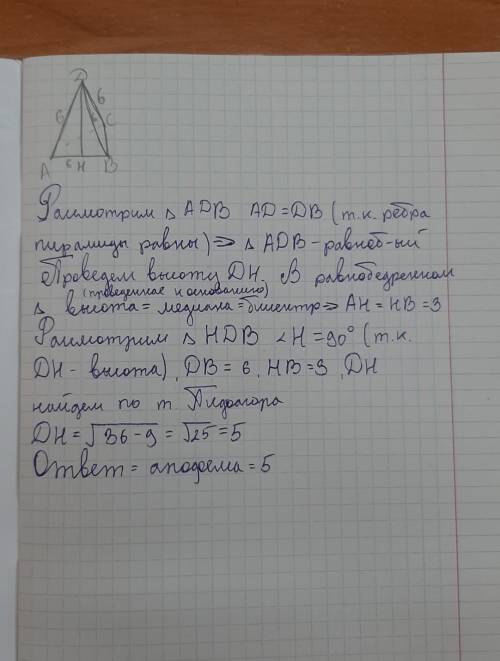 D
6
6
C
A
6
H
B
Рассмотрим △ ADB AD = DB (т.к. рёбра
пирамиды равны) ⇒ △ ADB - равноб-ый
Проведем высоту DH. В равнобедренном
(проведенная к основанию)
△ высота = медиана = биссектр ⇒ AH = HB = 3
Рассмотрим △ HDB ∠H = 90° (т.к.
DH - высота), DB = 6, HB = 3, DH
найдем по т. Пифагора
DH = √36-9 = √25 = 5
Ответ = апофема = 5